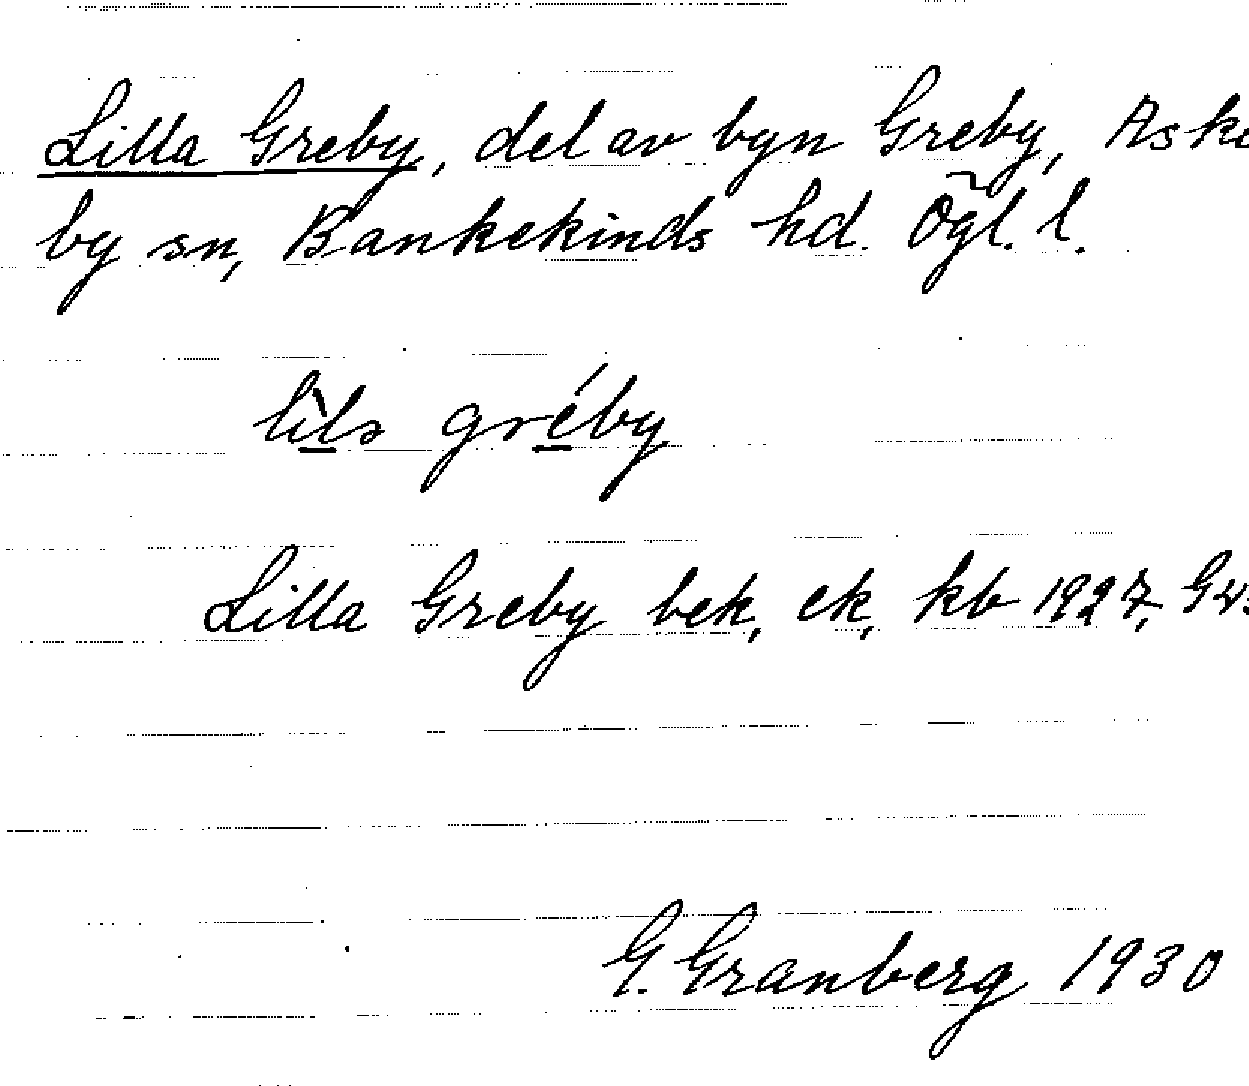 Lilla Greby, del av byn Greby, Aske
by sn, Bankekinds hd. Ögl. l.
gréby
Lilla Greby bek, ek, kb 1927,
G. Granberg 1930